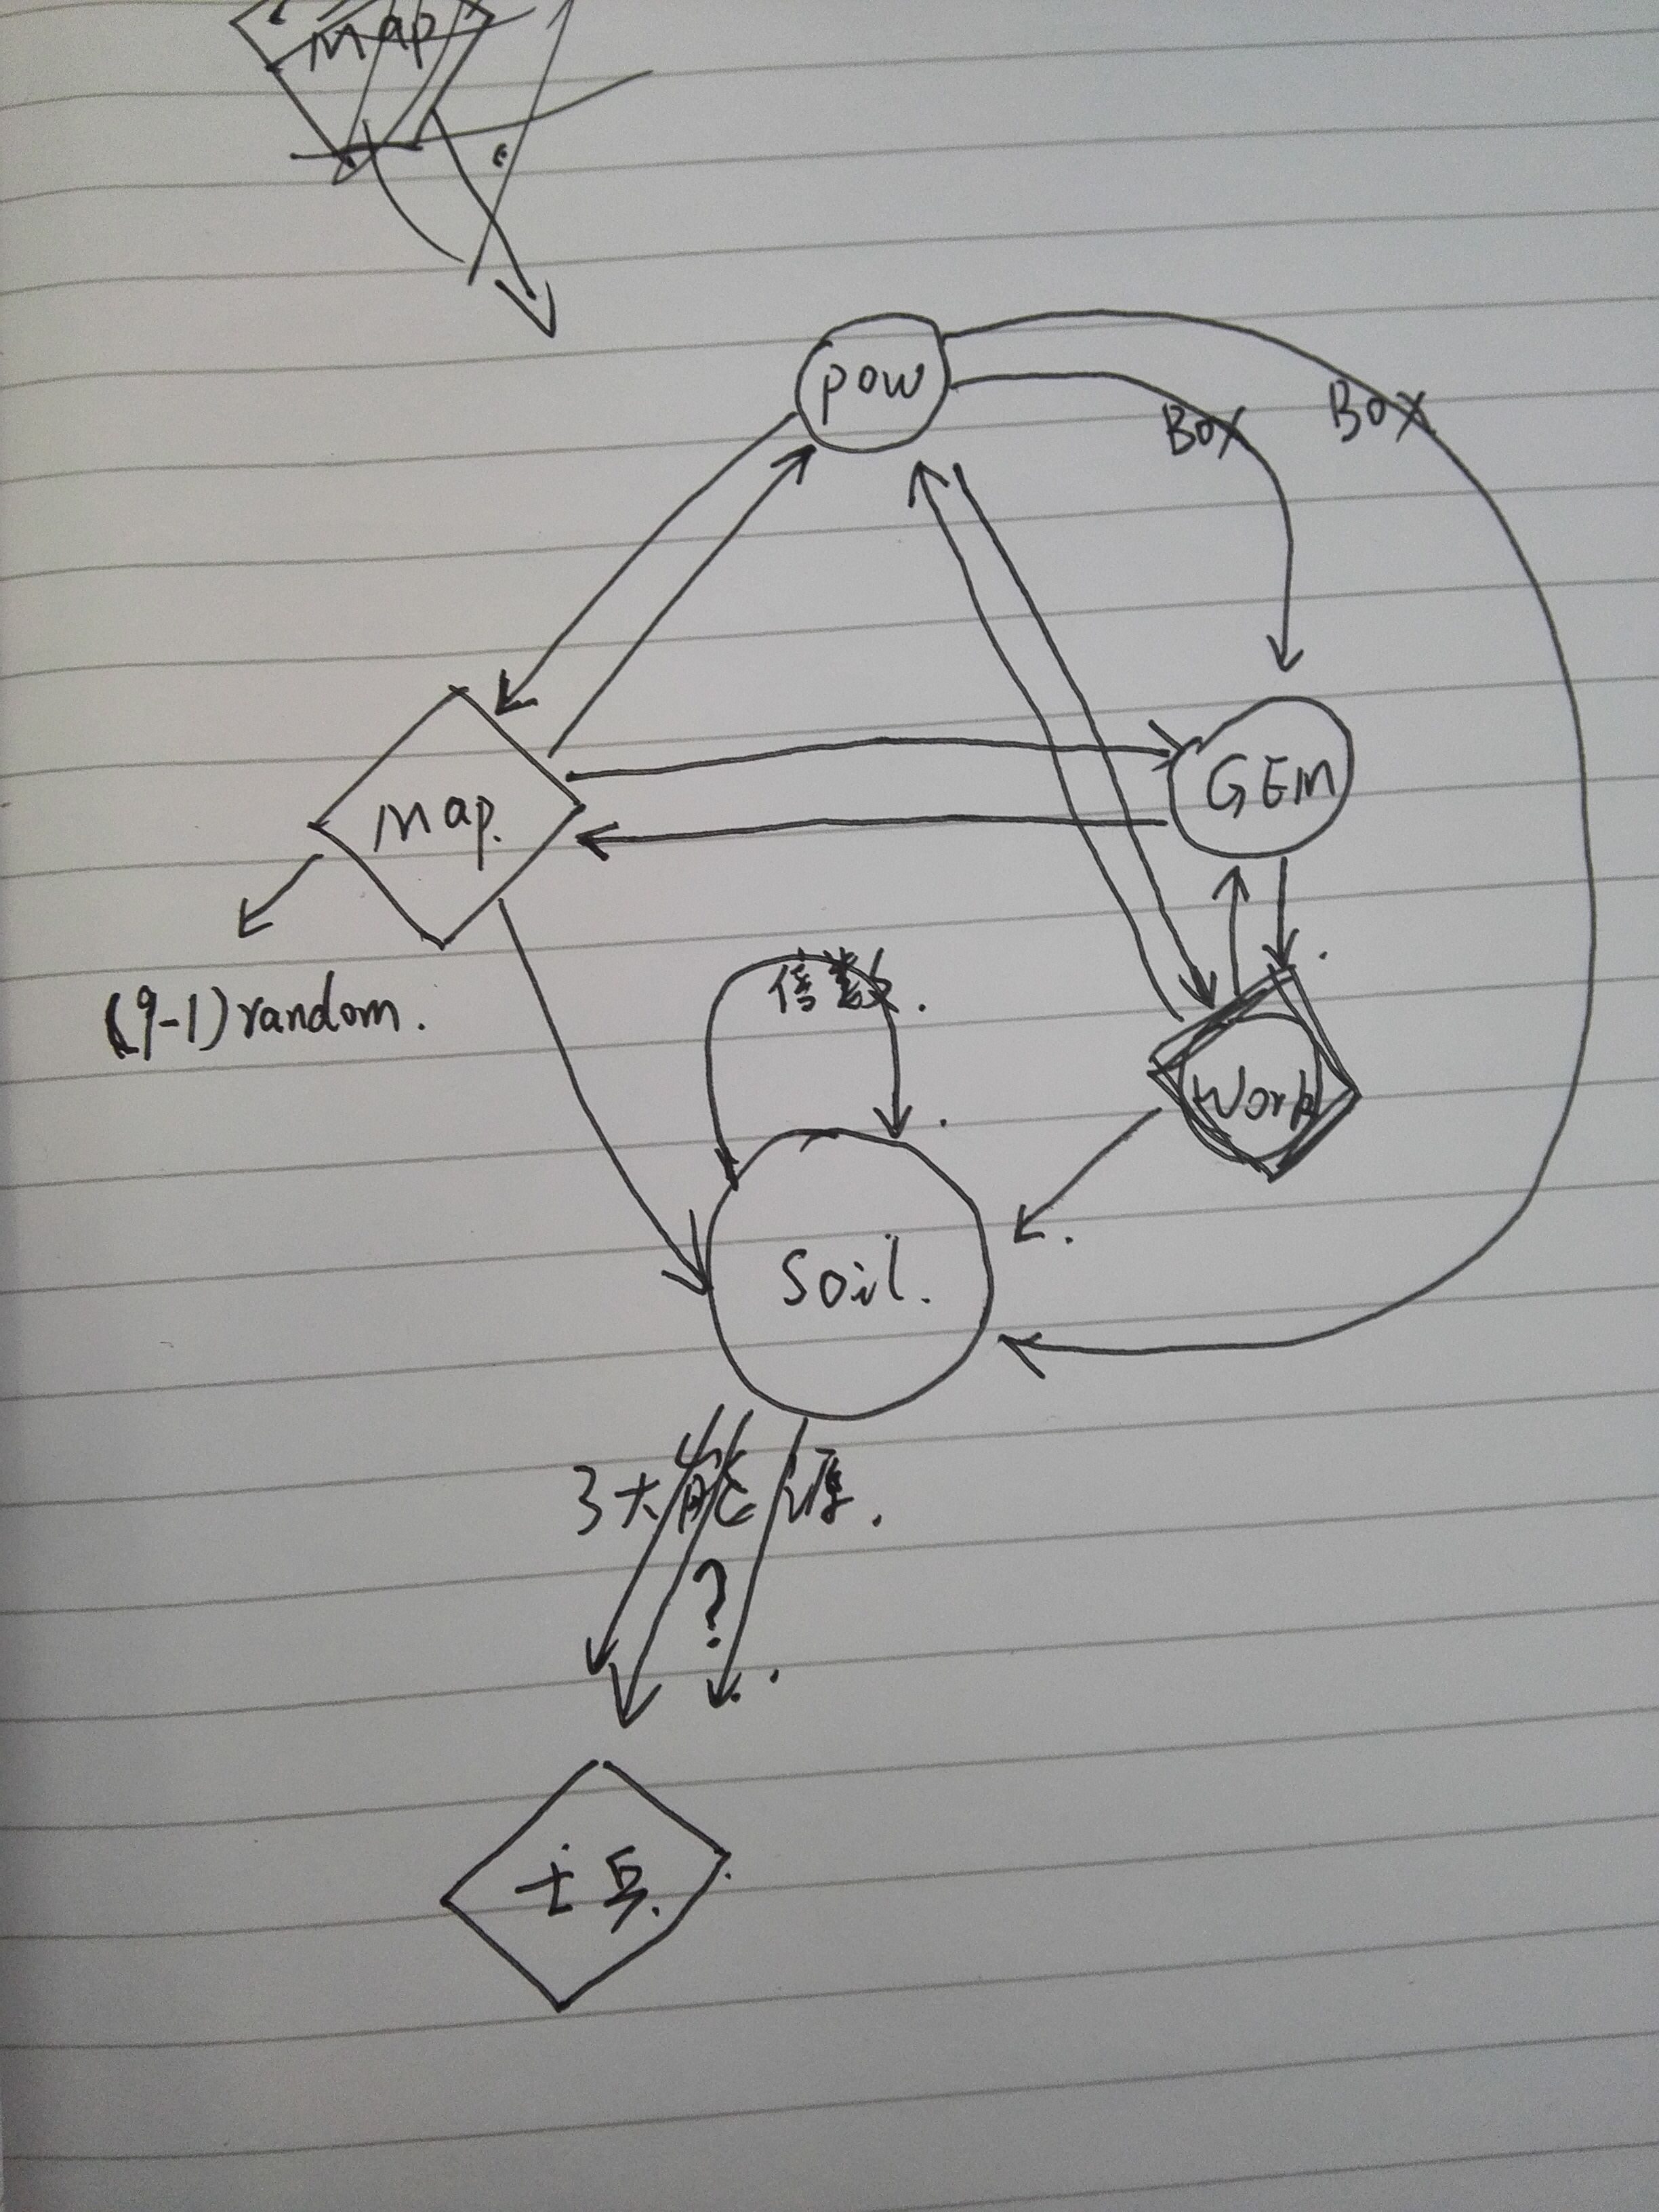 Map
pow
Box
Box
GEM
Map.
(9-1) random.
倍数.
Work
Soil.
3大能源.
?
士兵.